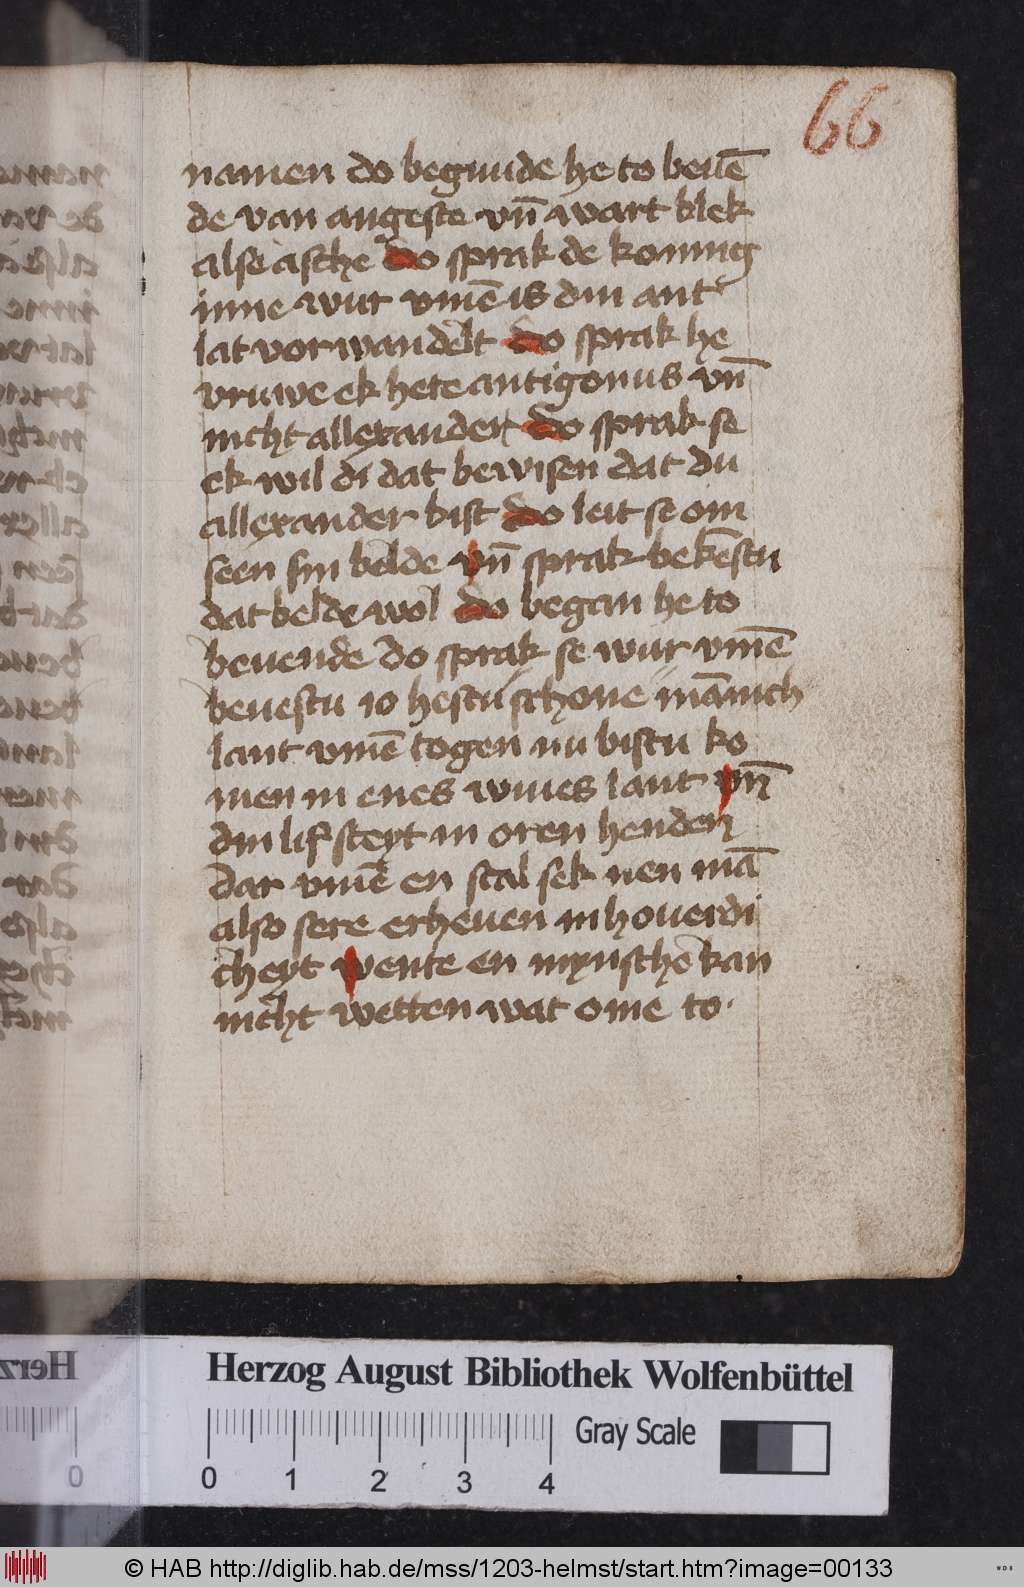 66
namen do begunde he to beuē
de van angeste vn̄ wart blek
alse asche do sprak de koning
inne wur vmē is din ant
lat vorwandelt do sprak he
vruwe ek hete antigonus vn̄
nicht allexander do sprak se
ek wil di dat bewisen dat du
allexander bist do leit se om
seen sin belde vn̄ sprak bekēstu
dat belde wol do began he to
beuende do sprak se wur vmē
beuestu io hestu schone mānich
lant vmē togen nu bistu ko
men in enes wiues lant vn̄
din lif steyt in oren henden
dar vmē en scal sek nen mā
also sere erheuen in houerdi
cheyt wente en mynsche kan
nicht wetten wat ome to.
Herzog August Bibliothek Wolfenbüttel
Gray Scale
0 1 2 3 4
© HAB http://diglib.hab.de/mss/1203-helmst/start.htm?image=00133